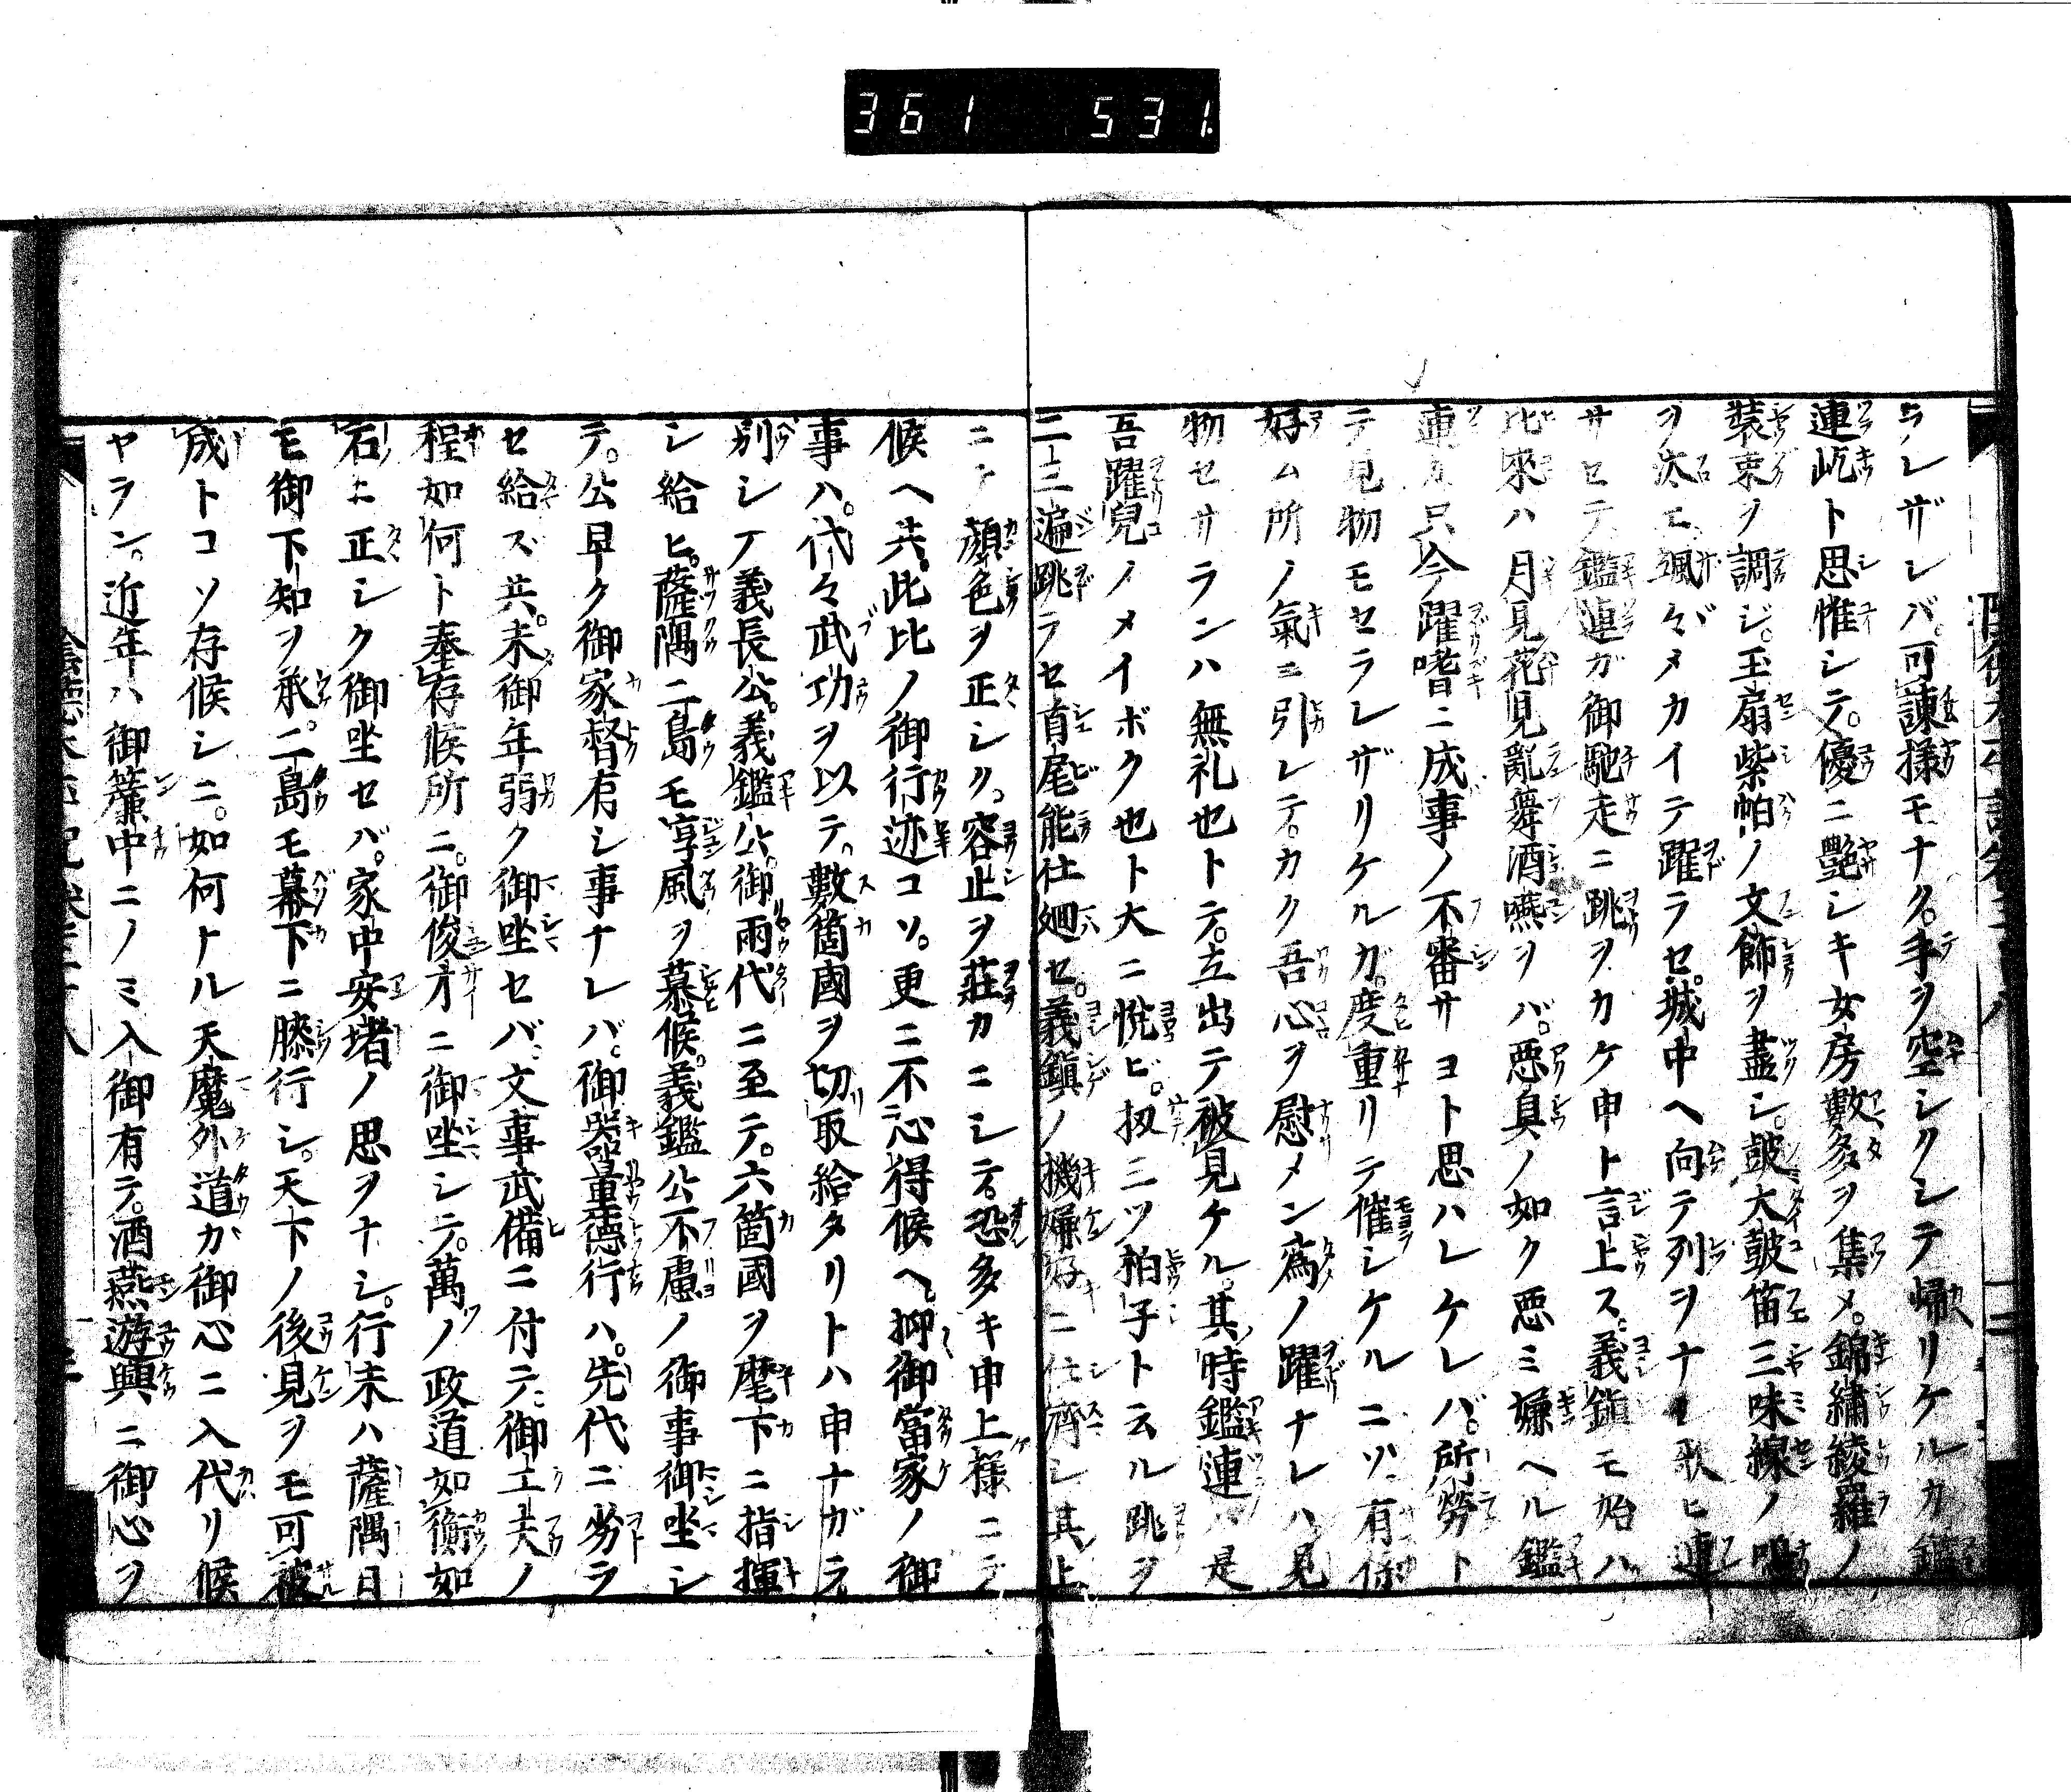 361 531
ラレザレバ。可諫様モナク。手ヲ空シクシテ帰リケルカ鑑
連屹ト思惟シテ。優ニ艶シキ女房數多ヲ集メ。錦繍綾羅ノ
装束ヲ調ジ。玉扇紫帕ノ文飾ヲ盡シ。皷大皷笛三味線ノ鳴
ヲ汰エ颯々ヅメカイテ躍ラセ。城中ヘ向テ列ヲナシ歌ヒ連
サセテ鑑連ガ御馳走ニ跳ヲカケ申ト言上ス。義鎮モ始ハ
比來ハ月見花見亂舞酒嚥ヲバ。惡臭ノ如ク惡ミ嫌ヘル鑑
連カ只今躍嗜ニ成事ノ不審サヨト思ハレケレバ。所勞ト
テ見物モセラレザリケルガ。度重リテ催シケルニゾ有係
好ム所ノ氣ニ引レテ。カク吾心ヲ慰メン爲ノ躍ナレハ見
物セサランハ無礼也トテ。立出テ被見ケル。其時鑑連ハ是
吾躍兒ノメイボク也ト大ニ悦ビ。扨三ツ柏子ト云ル跳ヲ
二三遍跳ラセ首尾能仕廻セ。義鎮ノ機嫌好ニ仕濟シ其上
ニテ顔色ヲ正シク。容止ヲ莊カニシテ。恐多キ申上様ニテ
候ヘ共。此比ノ御行迹コソ。更ニ不心得候ヘ。抑御當家ノ御
事ハ。代々武功ヲ以テ。數箇國ヲ切取給タリトハ申ナガラ
別シテ義長公。義鑑公。御兩代ニ至テ。六箇國ヲ麾下ニ指揮
シ給ヒ。薩隅二島モ享風ヲ慕候。義鑑公不慮ノ御事御坐シ
テ。公早ク御家督有シ事ナレバ。御器量德行ハ。先代ニ劣ラ
セ給ズ共。未御年弱ク御坐セバ。文事武備ニ付テ。御工夫ノ
程如何ト奉存候所ニ。御俊才ニ御坐シテ。萬ノ政道如衡如
石ニ正シク御坐セバ。家中安堵ノ思ヲナシ。行末ハ薩隅日
モ御下知ヲ承。二島モ幕下ニ膝行シ。天下ノ後見ヲモ可被
成トコソ存候シニ。如何ナル天魔外道カ御心ニ入代リ候
ヤラン。近年ハ御簾中ニノミ入御有テ。酒燕游興ニ御心ヲ